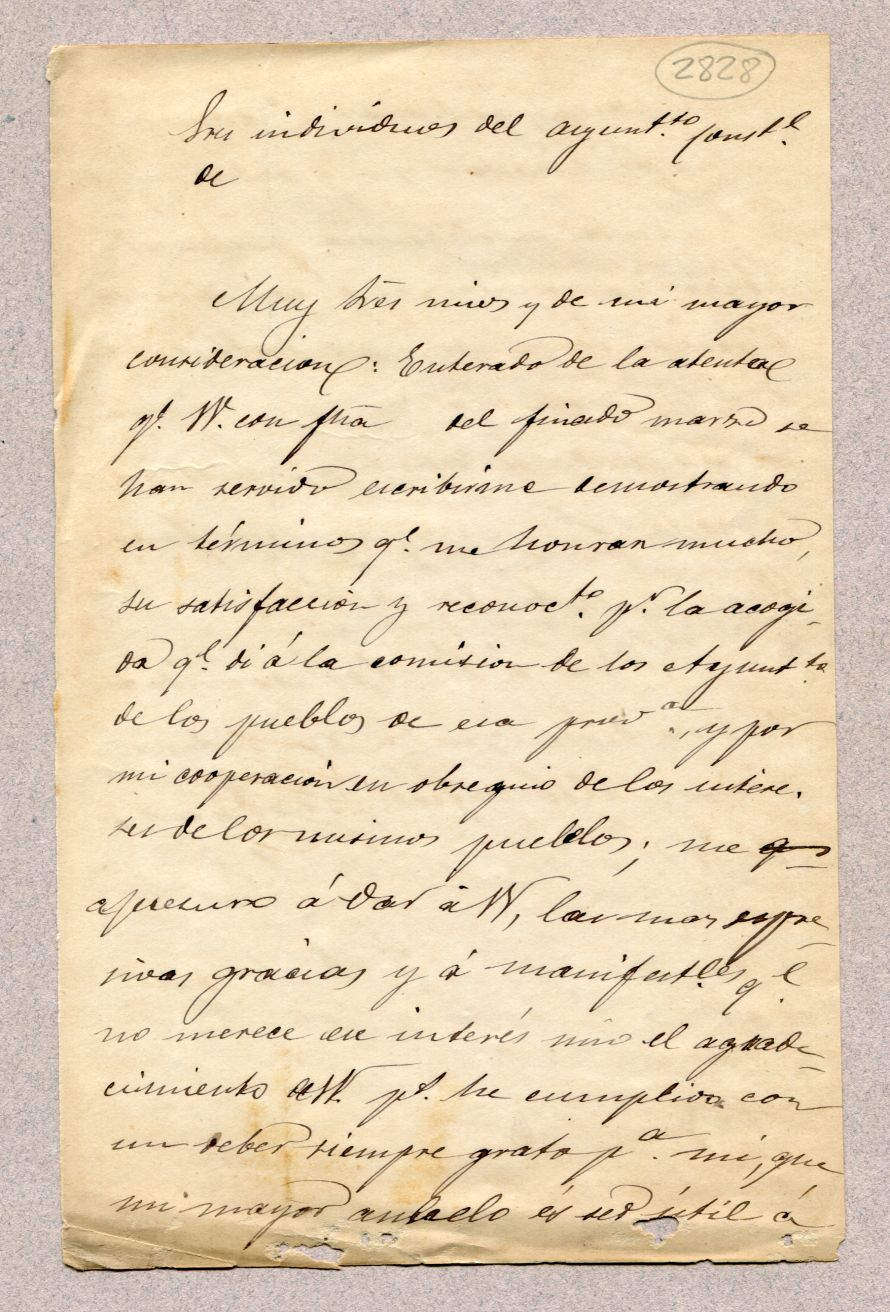 2828
Sres individuos del ayunt.to Const.l
de
Muy Sres mios y de mi mayor
consideracion: Enterado de la atenta
q.e VV. con fha del finado marzo se
han servido escribirme demostrando
en términos q.e me honran mucho,
su satisfacción y reconoc.to p.r la acogi-
da q.e di á la comision de los Ayunt.tos
de los pueblos de esa prov.a, y por
mi cooperación en obsequio de los intere-
ses de los mismos pueblos; me
apresuro á dar á VV, las mas espre-
sivas gracias y á manifest.les q.e
no merece ese interés mio el agrade-
cimiento de VV. p.s he cumplido con
un deber siempre grato p.a mi, que
mi mayor anhelo és ser útil á